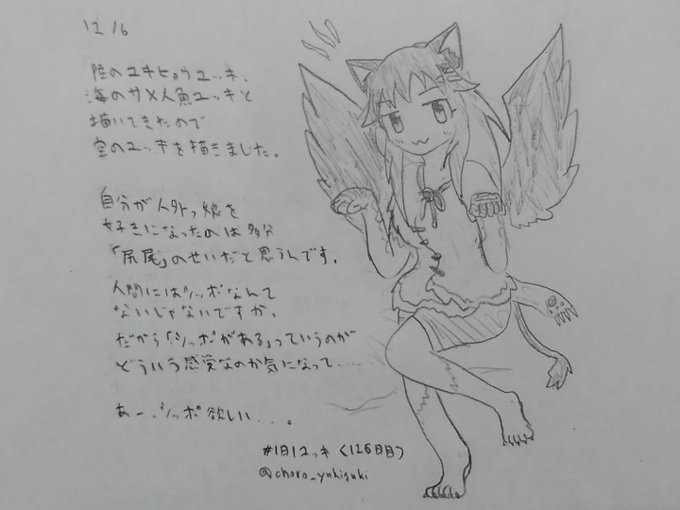 12/6
陸のユキヒョウユッキ、
海のサメ人魚ユッキと
描いてきたので
空のユッキを描きました。
自分が人外っ娘を
好きになったのは多分
「尻尾」のせいだと思うんです。
人間にはシッポなんて
ないじゃないですか、
だから「シッポがある」っていうのが
どういう感覚なのか気になって……
あー、シッポ欲しい……。
#1日1ユッキ(126日目)
@choro_yukisuki